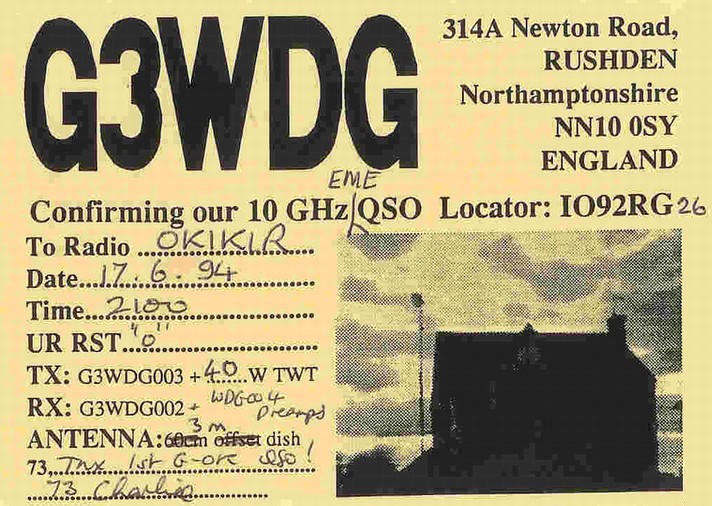 G3WDG
314A Newton Road,
RUSHDEN
Northamptonshire
NN10 0SY
ENGLAND
EME
Confirming our 10 GHz QSO Locator: IO92RG26
To Radio OK1KIR
Date 17.6.94
Time 2100
UR RST "O"
TX: G3WDG003 + 40 W TWT
RX: G3WDG002 + WDG004
Preamps
3m
ANTENNA: 60cm offset dish
73 Tnx 1st G-OK QSO!
73 Charlie